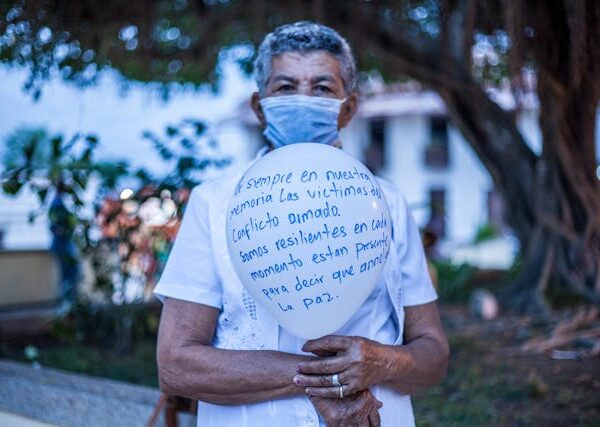 siempre en nuestra
memoria las victimas del
conflicto armado.
somos resilientes en cada
momento estan presente
para decir que
la paz.